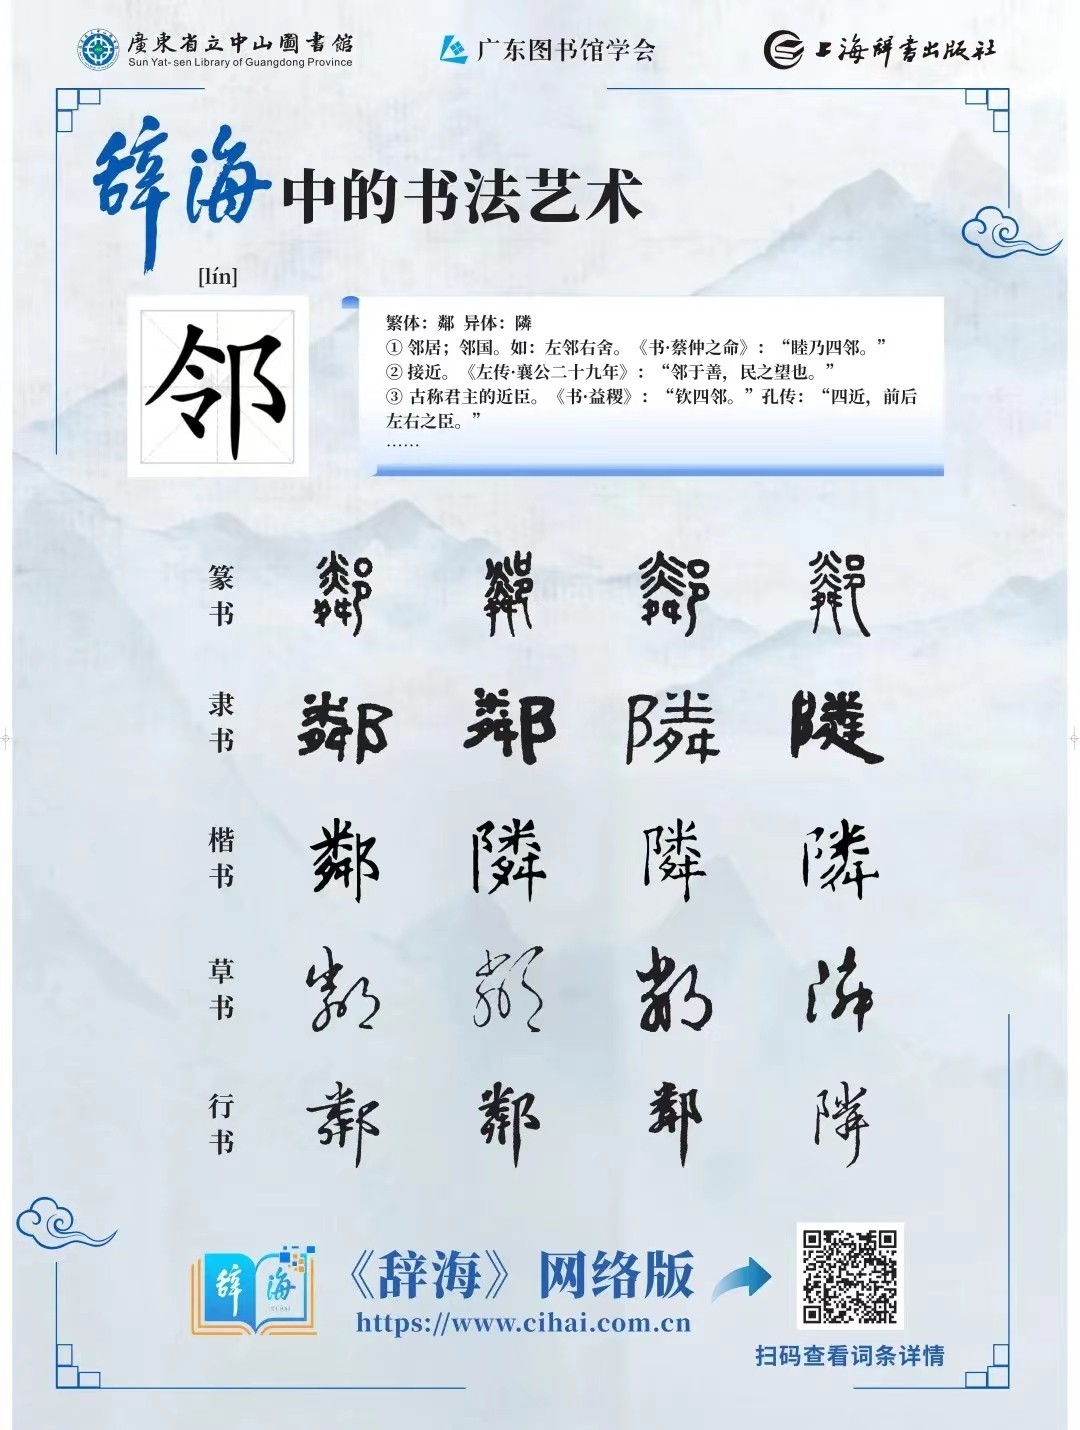 廣東省立中山圖書館
Sun Yat-sen Library of Guangdong Province
广东图书馆学会
上海辞书出版社
辞海中的书法艺术
[lín]
邻
繁体：鄰 异体：隣
① 邻居；邻国。如：左邻右舍。《书·蔡仲之命》：“睦乃四邻。”
② 接近。《左传·襄公二十九年》：“邻于善，民之望也。”
③ 古称君主的近臣。《书·益稷》：“钦四邻。”孔传：“四近，前后
左右之臣。”
……
篆书 鄰 鄰 鄰 鄰
隶书 鄰 鄰 隣 隣
楷书 鄰 隣 隣 隣
草书 鄰 鄰 鄰 隣
行书 鄰 鄰 鄰 隣
辞海
《辞海》网络版
https://www.cihai.com.cn
扫码查看词条详情